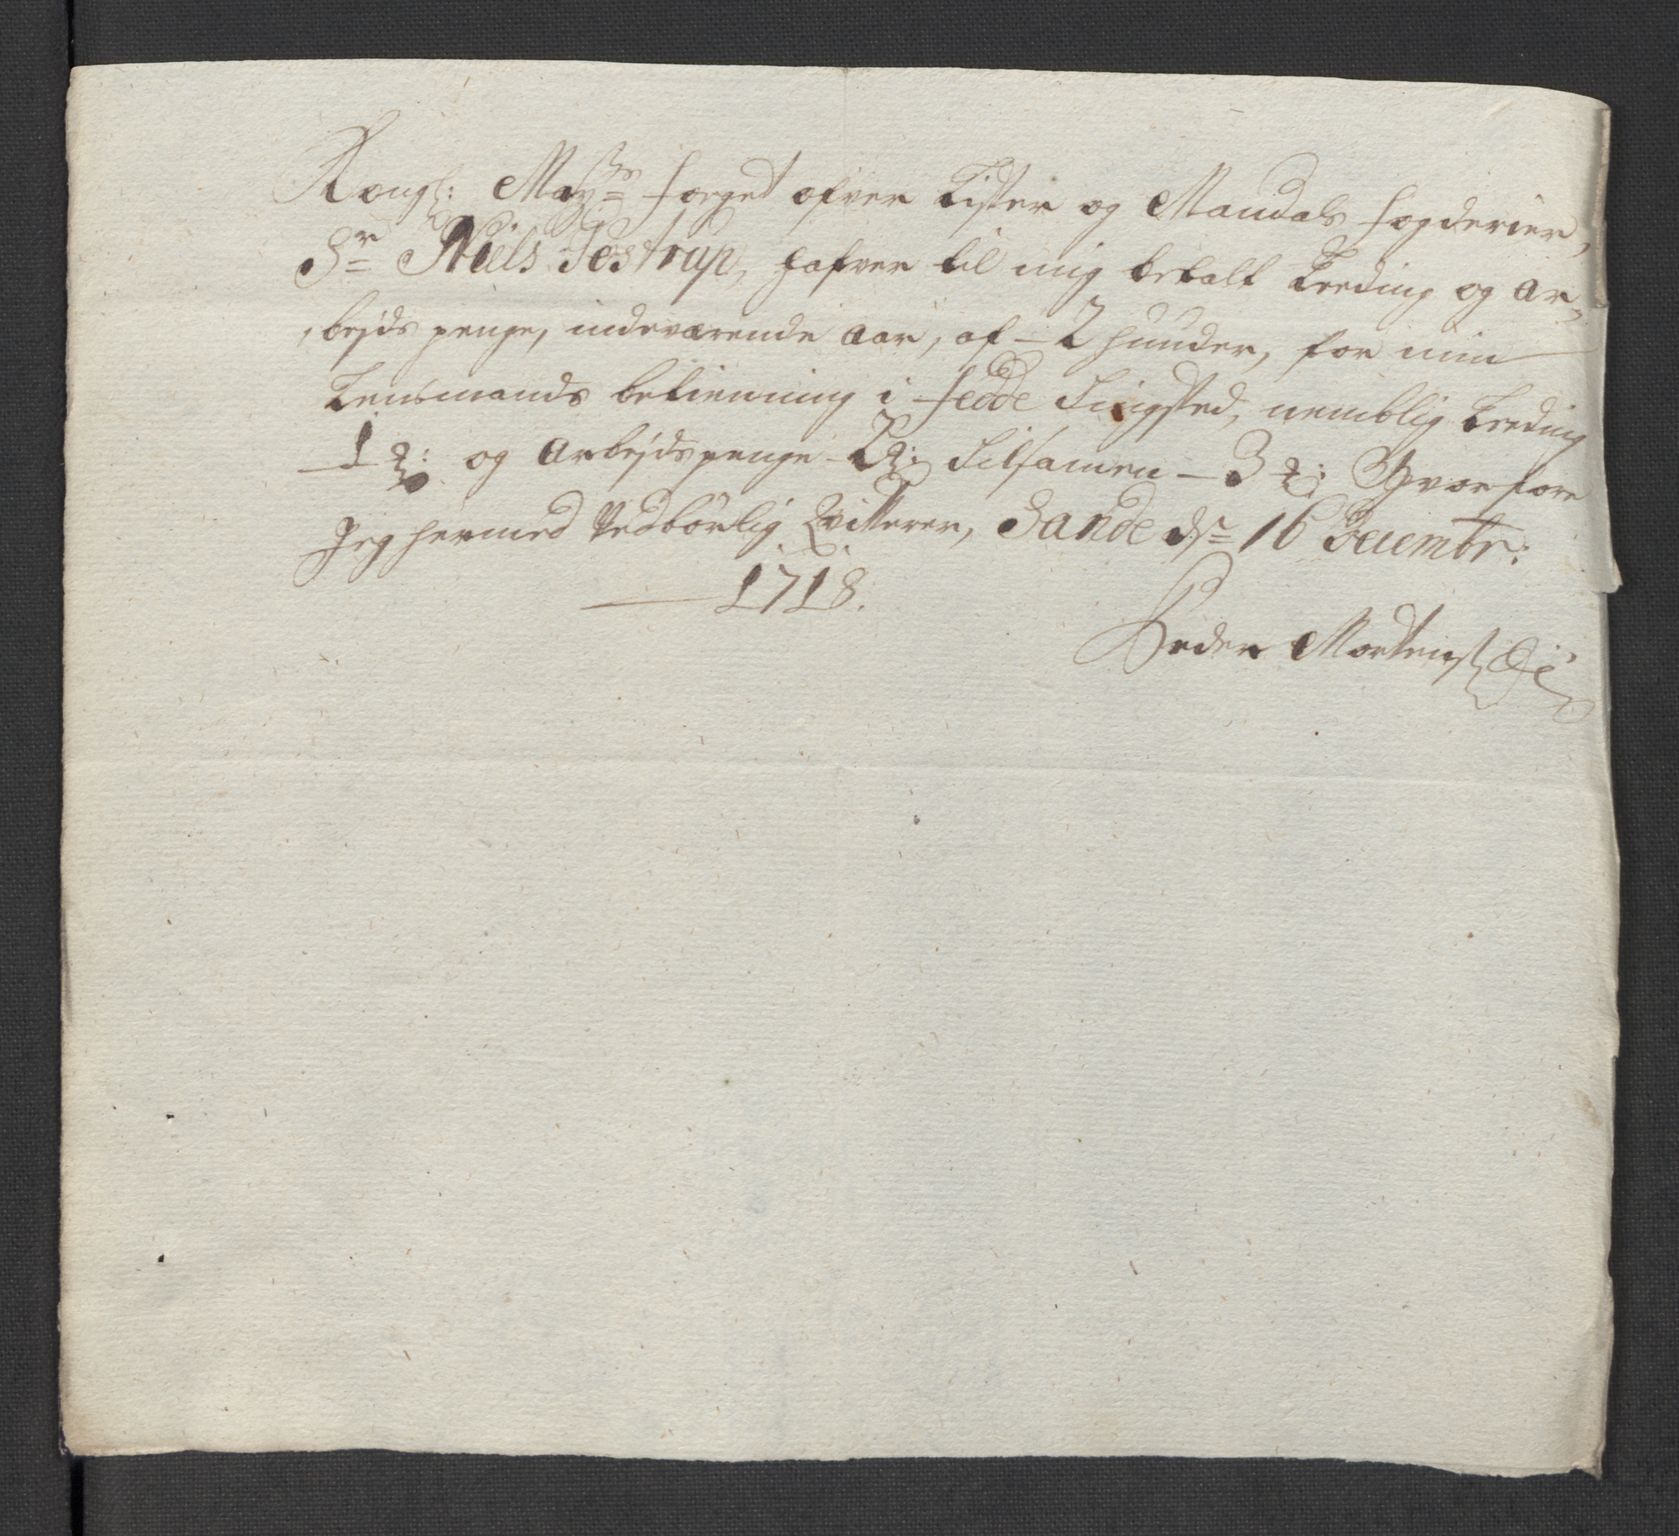 Kongl: Mayts foeget ofver Lister og Mandals fogderier,
Sr Niels Jestrup, hafver til mig betalt Leeding og ar,
,bejds penge, indeværende aar, af - 2 huuder, for min
Lensmands betienning i Fedde Tingsted, nemblig Leeding
- 1 rd: og arbejdspenge 2 rd: Tilsamen - 3 rd: Hvorfore
Jeg hermed Vedbørlig Qvitterer, Sande ds 16 Decembr:
1718.
Peder Mortens